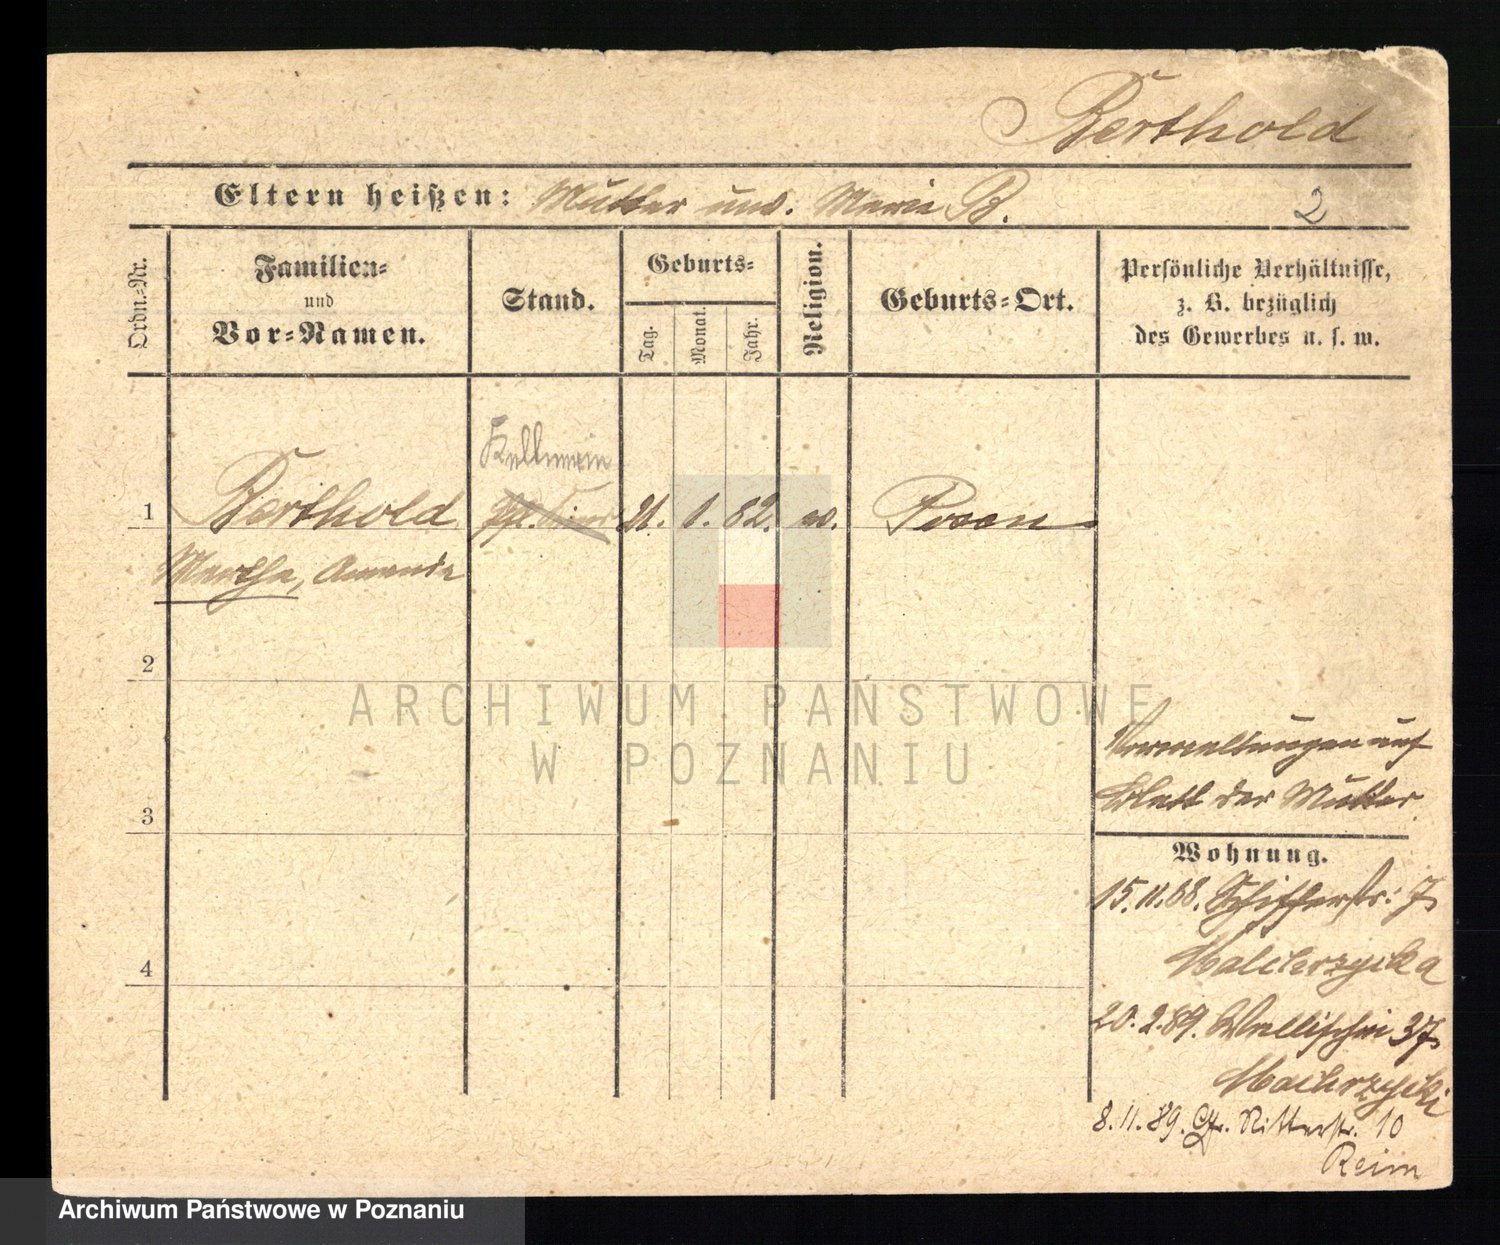 Berthold
Eltern heißen: Mutter unv. Marie B.
2
Ordn.-Nr.
Familien-
und
Vor-Namen.
Stand.
Geburts-
Tag.
Monat.
Jahr.
Religion.
Geburts-Ort.
Persönliche Verhältnisse,
z. B. bezüglich
des Gewerbes u. s. w.
Kellnerin
1 Berthold 21. 1. 62. ev. Posen
Martha, Amanda
2
3
4
auf
Blatt der Mutter
Wohnung.
15.11.68. Schifferstr: 7
20.2.89. Wallischei 37
8.11.89. Gr. Ritterstr. 10
Reim
ARCHIWUM PAŃSTWOWE
W POZNANIU
Archiwum Państwowe w Poznaniu